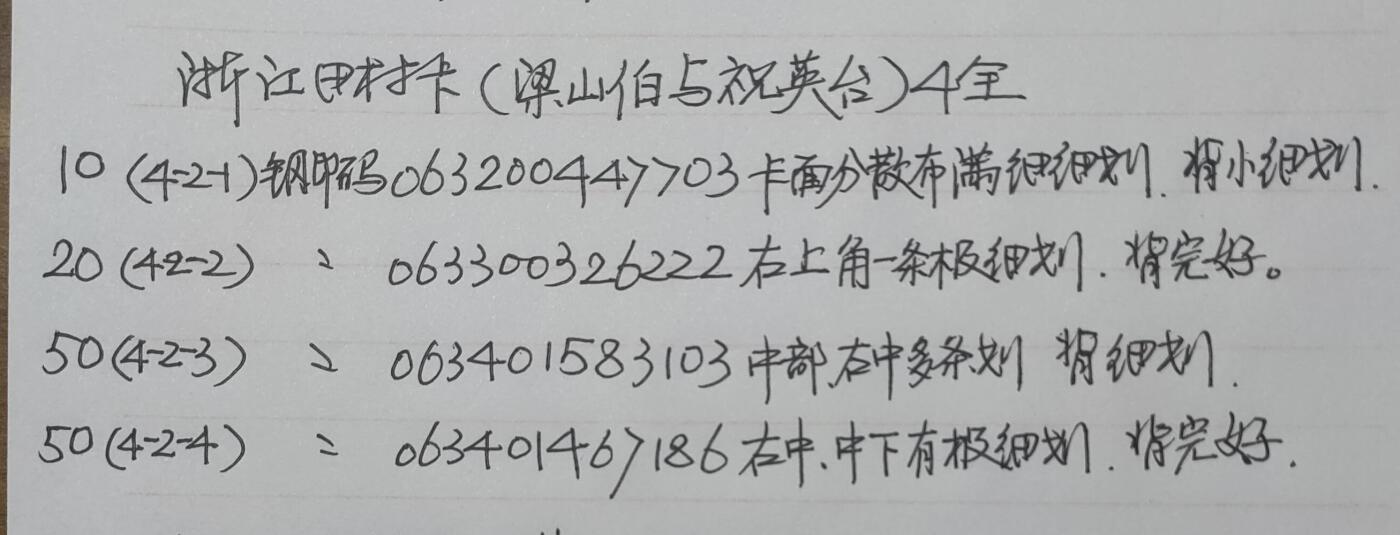 浙江田村卡(梁山伯与祝英台)4全
10(4-2-1)钢印码063200447703卡面分散布满细细划.背小细划.
20(4-2-2) 〃 063300326222右上角一条极细划.背完好。
50(4-2-3) 〃 063401583103中部、右中多条划 背细划.
50(4-2-4) 〃 063401467186右中、中下有极细划.背完好.